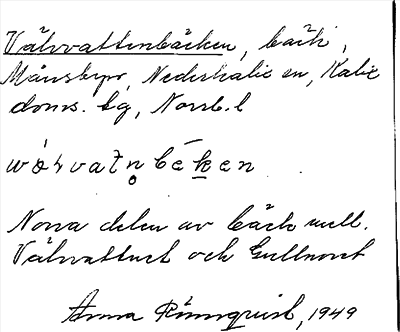 Välvattenbäcken, bäck,
Månsbyn, Nederkalix sn, Kalix
doms. tg, Norrb. l
Norra delen av bäck mell.
Välvattnet och Gullnret
Anna Rönnqvist, 1949